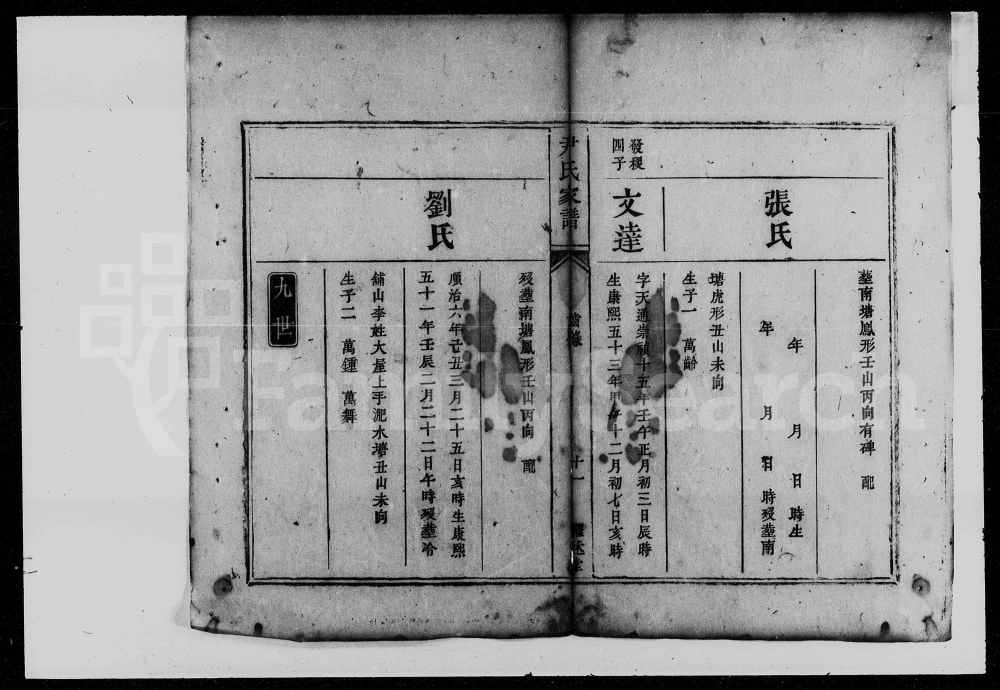 塟南塘鳳形壬山丙向有碑 配
張氏
年 月 日 時生
年 月 日 時歿塟南
塘虎形丑山未向
生子一 萬齡
發稷
四子
文達
字天通崇禎十五年壬午正月初三日辰時
生康熙五十三年甲午十二月初七日亥時
尹氏家譜
齒錄
十一
歿塟南塘鳳形壬山丙向 配
劉氏
順治六年己丑三月二十五日亥時生康熙
五十一年壬辰二月二十二日午時歿塟冷
鋪山李姓大屋上手淝水塘丑山未向
生子二 萬鍾 萬舞
九世
FamilySearch